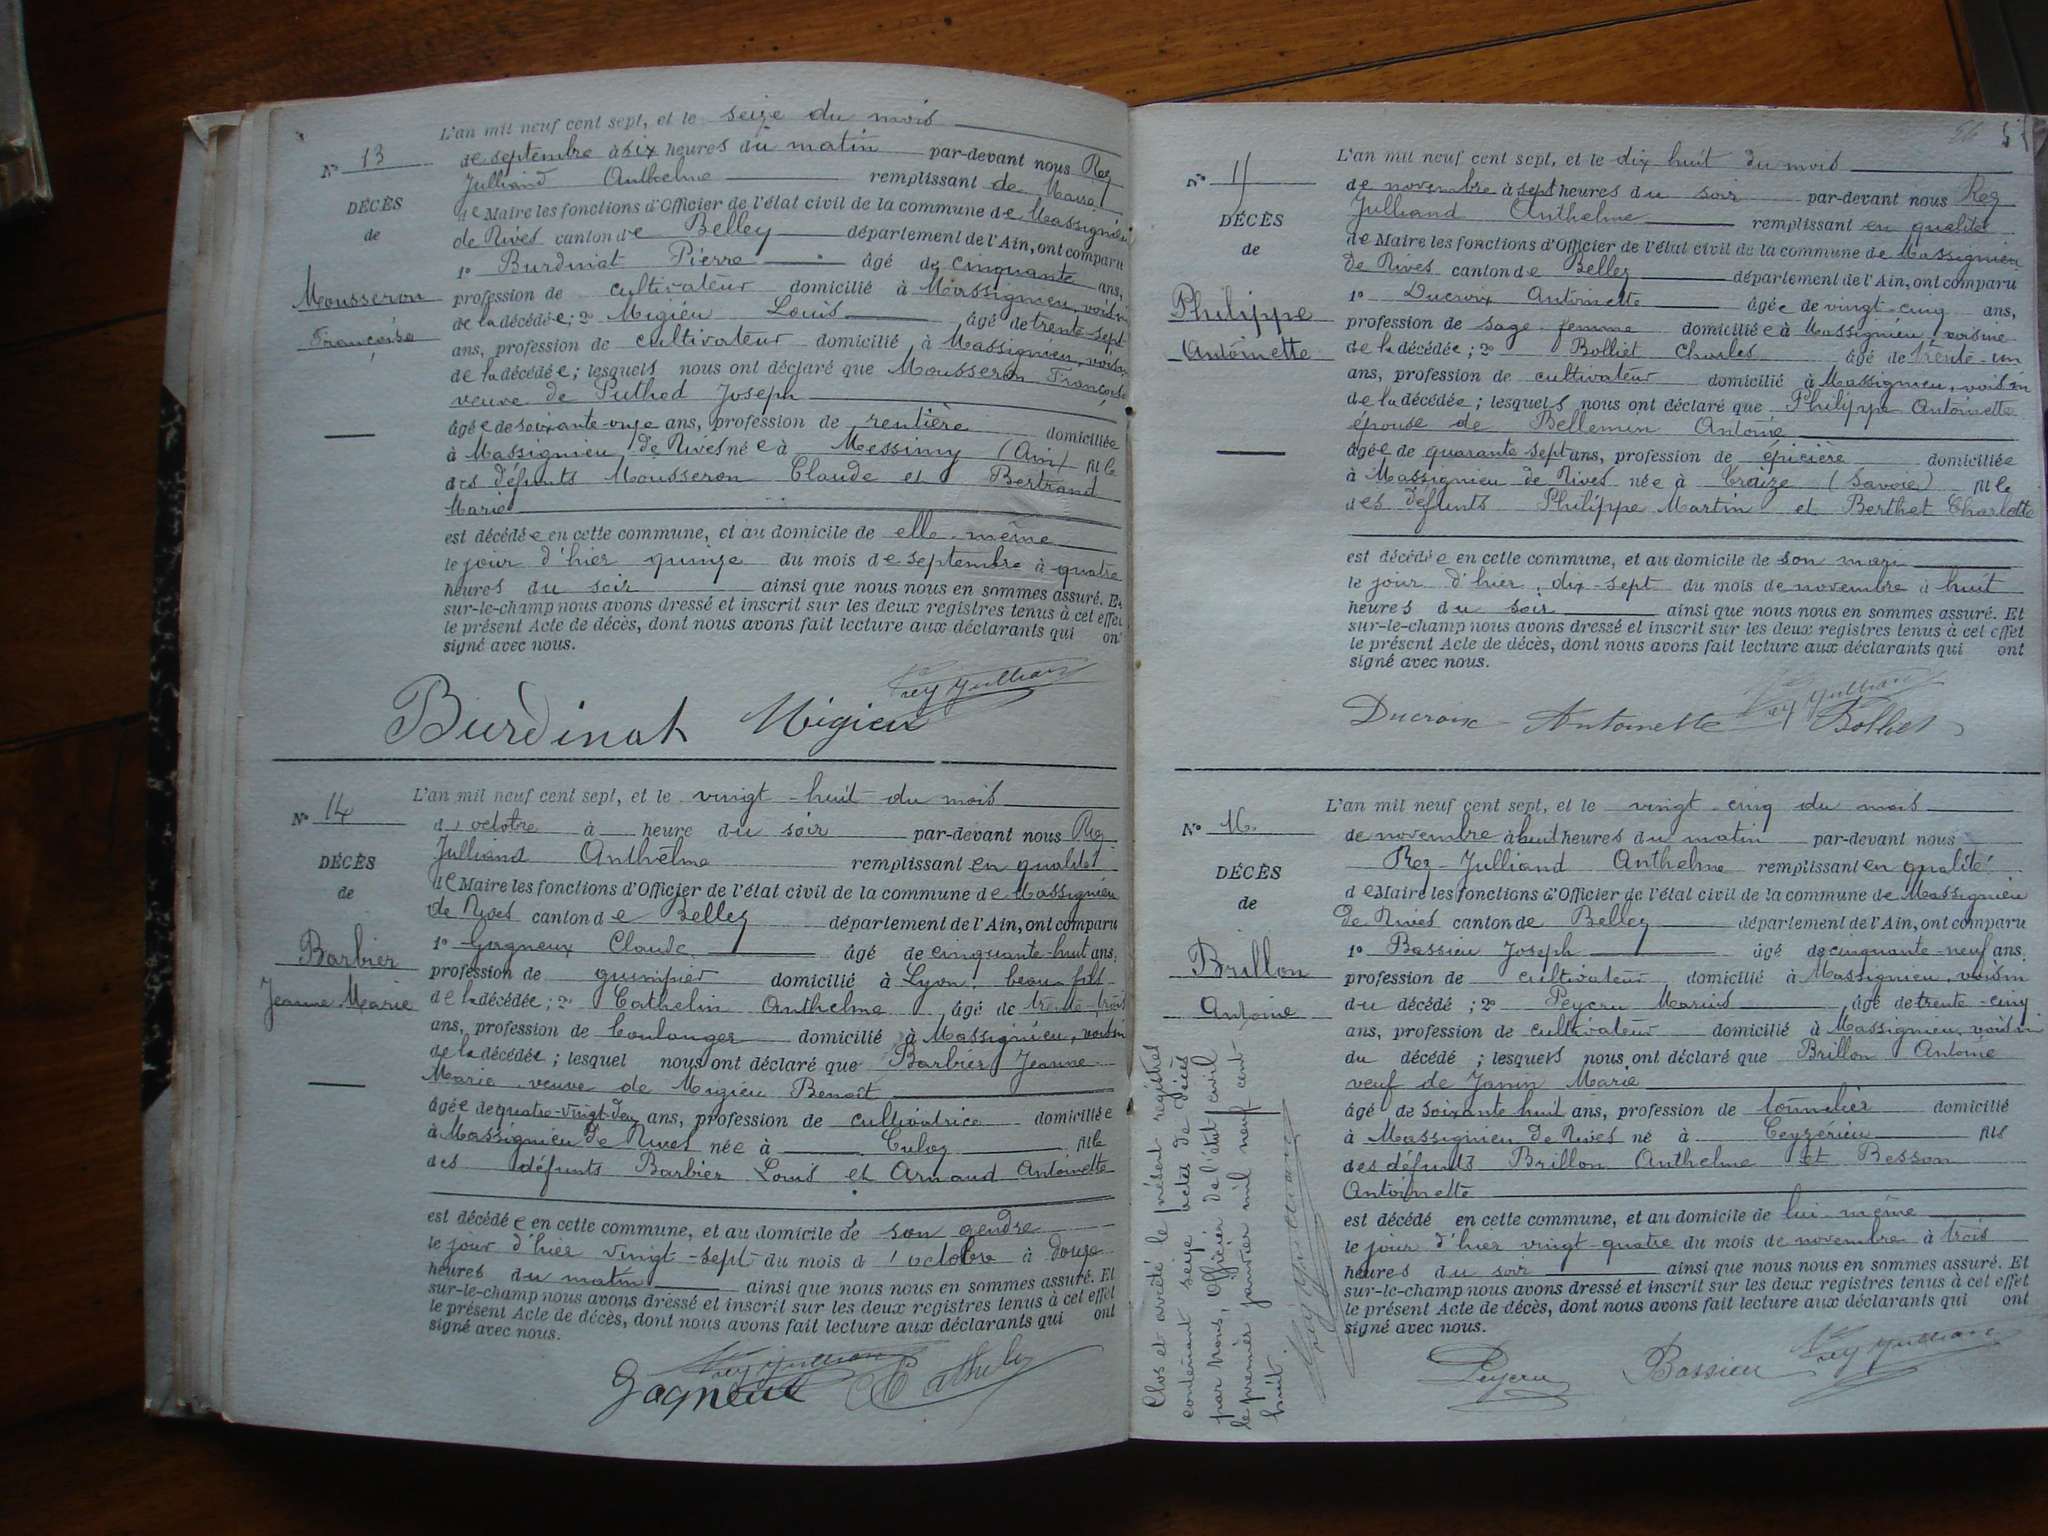 L'an mil neuf cent sept, et le seize du mois
N° 13
de septembre à six heures du matin par-devant nous Rey
Julliand Anthelme remplissant de
DÉCÈS
de Maire les fonctions d'Officier de l'état civil de la commune de Massignieu
de
de Rives canton de Belley département de l'Ain, ont comparu
1° Burdinat Pierre âgé de cinquante ans,
Mousseron
profession de cultivateur domicilié à Massignieu, voisin
Françoise
de la décédée; 2° Migieu Louis âgé de trente-sept
ans, profession de cultivateur domicilié à Massignieu, voisin
de la décédée; lesquels nous ont déclaré que Mousseron Françoise
veuve de Puthod Joseph
âgée de soixante-onze ans, profession de rentière domiciliée
à Massignieu de Rives née à Messimy (Ain) fille
des défunts Mousseron Claude et Bertrand
Marie
est décédée en cette commune, et au domicile de elle-même
le jour d'hier quinze du mois de septembre à quatre
heures du soir ainsi que nous nous en sommes assuré. Et
sur-le-champ nous avons dressé et inscrit sur les deux registres tenus à cet effet
le présent Acte de décès, dont nous avons fait lecture aux déclarants qui ont
signé avec nous.
Rey Julliand
Burdinat Migieu
L'an mil neuf cent sept, et le vingt-huit du mois
N° 14
d'octobre à heure du soir par-devant nous Rey
Julliand Anthelme remplissant en qualité
DÉCÈS
de Maire les fonctions d'Officier de l'état civil de la commune de Massignieu
de
de Rives canton de Belley département de l'Ain, ont comparu
1° Gagneux Claude âgé de cinquante-huit ans,
Barbier
profession de guimpier domicilié à Lyon, beau-fils
Jeanne Marie
de la décédée; 2° Cathelin Anthelme âgé de trente-trois
ans, profession de boulanger domicilié à Massignieu, voisin
de la décédée; lesquel nous ont déclaré que Barbier Jeanne
Marie veuve de Migieu Benoît
âgée de quatre-vingt-deux ans, profession de cultivatrice domiciliée
à Massignieu de Rives née à Culoz fille
des défunts Barbier Louis et Arnaud Antoinette
est décédée en cette commune, et au domicile de son gendre
le jour d'hier vingt-sept du mois d'octobre à douze
heures du matin ainsi que nous nous en sommes assuré. Et
sur-le-champ nous avons dressé et inscrit sur les deux registres tenus à cet effet
le présent Acte de décès, dont nous avons fait lecture aux déclarants qui ont
signé avec nous.
Rey Julliand
Gagneux Cathelin
L'an mil neuf cent sept, et le dix huit du mois
N°
de novembre à sept heures du soir par-devant nous Rey
Julliand Anthelme remplissant en qualité
DÉCÈS
de Maire les fonctions d'Officier de l'état civil de la commune de Massignieu
de
de Rives canton de Belley département de l'Ain, ont comparu
1° Ducroix Antoinette âgée de vingt-cinq ans,
Philippe
profession de sage-femme domiciliée à Massignieu, voisine
Antoinette
de la décédée; 2° Bolliet Charles âgé de trente-un
ans, profession de cultivateur domicilié à Massignieu, voisin
de la décédée; lesquels nous ont déclaré que Philippe Antoinette
épouse de Bellemin Antoine
âgée de quarante sept ans, profession de épicière domiciliée
à Massignieu de Rives née à Traize (Savoie) fille
des défunts Philippe Martin et Berthet Charlotte
est décédée en cette commune, et au domicile de son mari
le jour d'hier, dix-sept du mois de novembre à huit
heures du soir ainsi que nous nous en sommes assuré. Et
sur-le-champ nous avons dressé et inscrit sur les deux registres tenus à cet effet
le présent Acte de décès, dont nous avons fait lecture aux déclarants qui ont
signé avec nous.
Rey Julliand
Ducroix Antoinette Bolliet
L'an mil neuf cent sept, et le vingt-cinq du mois
N° 16
de novembre à huit heures du matin par-devant nous
Rey-Julliand Anthelme remplissant en qualité
DÉCÈS
de Maire les fonctions d'Officier de l'état civil de la commune de Massignieu
de
de Rives canton de Belley département de l'Ain, ont comparu
1° Bassieu Joseph âgé de cinquante-neuf ans,
Brillon
profession de cultivateur domicilié à Massignieu, voisin
Antoine
du décédé; 2° Peycru Marius âgé de trente-cinq
ans, profession de cultivateur domicilié à Massignieu, voisin
du décédé; lesquels nous ont déclaré que Brillon Antoine
veuf de Janin Marie
âgé de soixante huit ans, profession de tonnelier domicilié
à Massignieu de Rives né à Ceyzérieu fils
des défunts Brillon Anthelme et Besson
Antoinette
est décédé en cette commune, et au domicile de lui-même
le jour d'hier vingt-quatre du mois de novembre à trois
heures du soir ainsi que nous nous en sommes assuré. Et
sur-le-champ nous avons dressé et inscrit sur les deux registres tenus à cet effet
le présent Acte de décès, dont nous avons fait lecture aux déclarants qui ont
signé avec nous.
Peycru Bassieu Rey Julliand
Clos et arrêté le présent registre
contenant seize actes de décès
par Nous, Officier de l'état civil
le premier janvier mil neuf-cent-
huit.
Rey Julliand